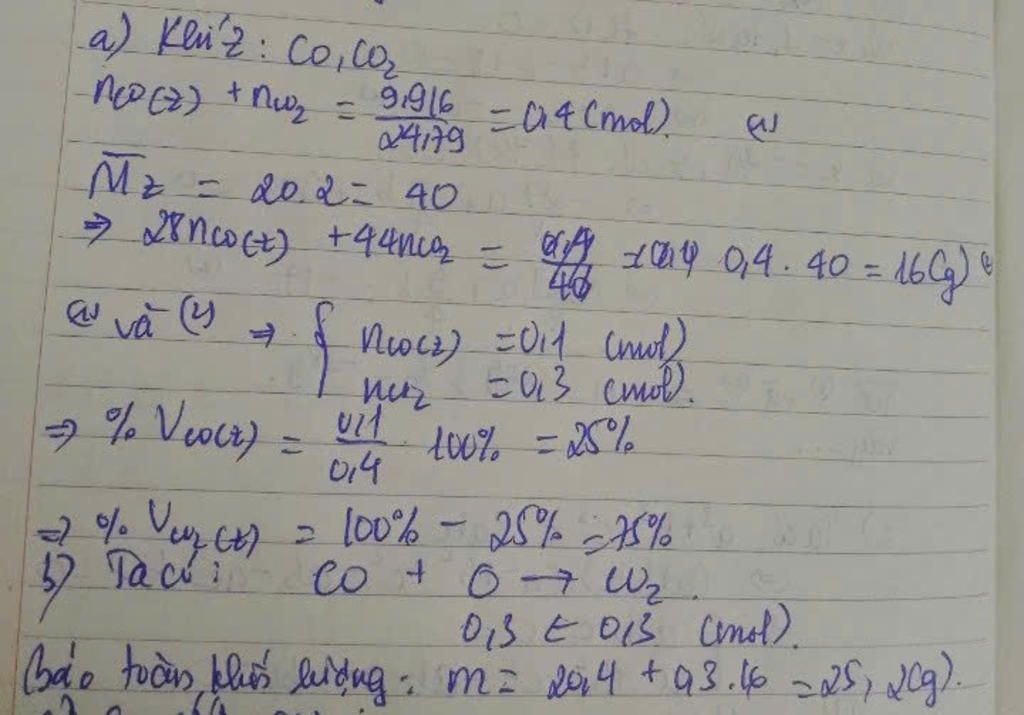 a) Khí Z: CO, CO2
nCO(Z) + nCO2 = 9,916/24,79 = 0,4 (mol). (1)
M̅Z = 20.2 = 40
⇒ 28nCO(Z) + 44nCO2 = 0,4 . 40 = 16(g)
(1) và (2) ⇒ { nCO(Z) = 0,1 (mol)
nCO2 = 0,3 (mol).
⇒ % VCO(Z) = 0,1/0,4 . 100% = 25%
⇒ % VCO2(Z) = 100% - 25% = 75%
b) Ta có: CO + O → CO2.
0,3 ← 0,3 (mol).
Bảo toàn khối lượng: m = 20,4 + 0,3.16 = 25,2(g).